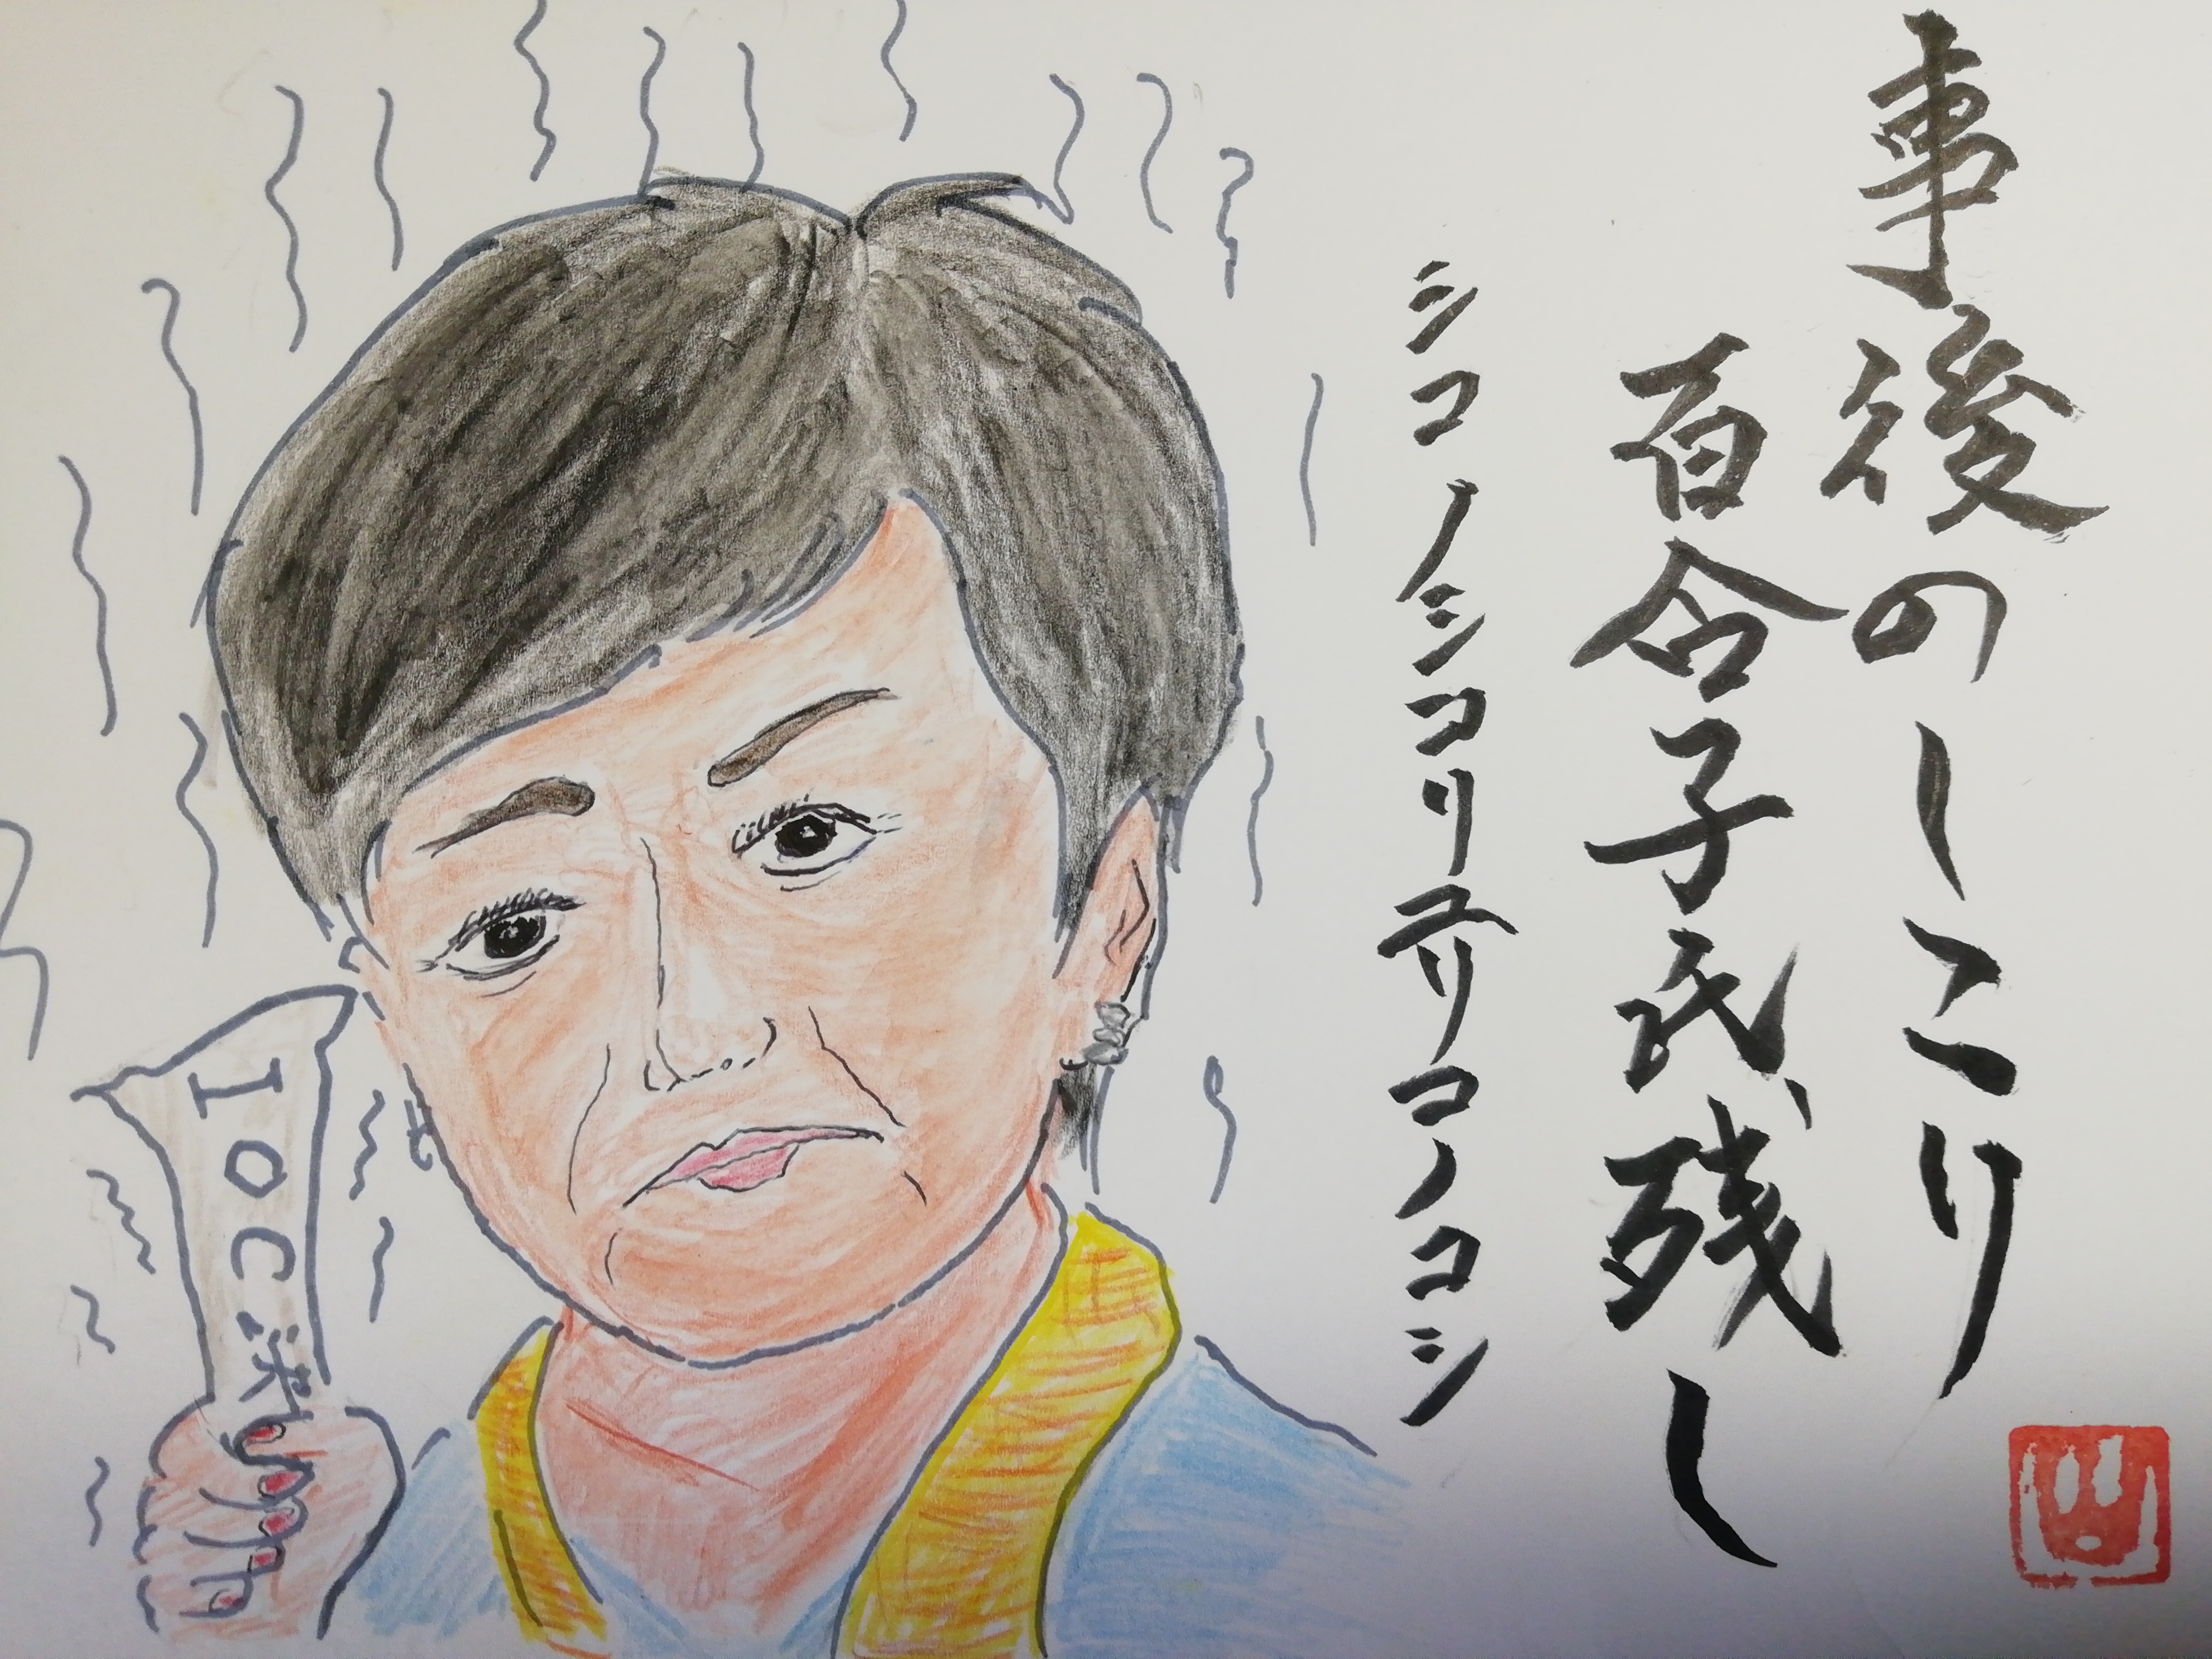 事後のしこり
百合子氏、残し
シコノシコリユリコノコシ
IOC